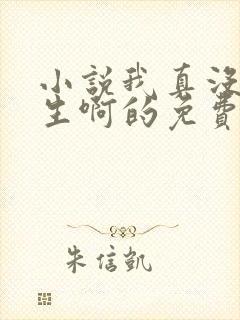 小説我真沒
生啊的免費
朱信凱